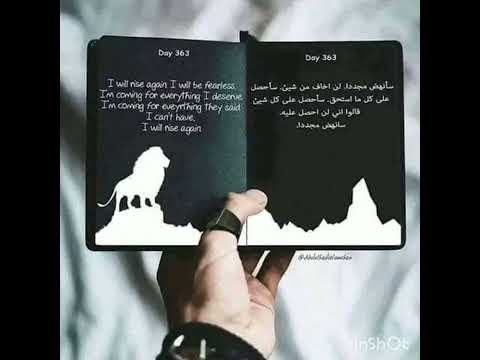 Day 363
I will rise again. I will be fearless.
I'm coming for everything I deserve.
I'm coming for eveyrthing they said
I can't have.
I will rise again.
Day 363
سأنهض مجددا. لن اخاف من شيئ. سأحصل
على كل ما استحق. سأحصل على كل شيئ
قالوا اني لن احصل عليه.
سانهض مجددا.
InShOt